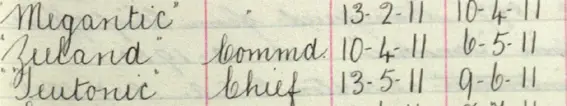 "Megantic" " 13-2-11 10-4-11
"Zeeland" Commd. 10-4-11 6-5-11
"Teutonic" Chief 13-5-11 9-6-11